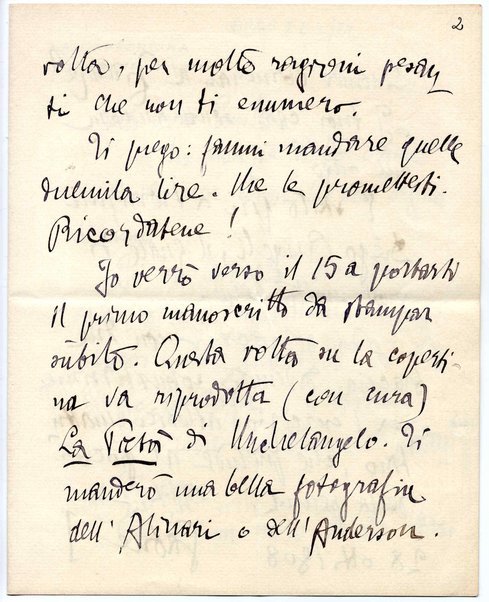 2
volta, per molte ragioni pesan
ti che non ti enumero.
Ti prego: fammi mandare quelle
duemila lire. Me le promettesti.
Ricordatene!
Io verrò verso il 15 a portarti
il primo manoscritto da stampar
subito. Questa volta su la coperti
na va riprodotta (con cura)
La Pietà di Michelangelo. Ti
manderò una bella fotografia
dell'Alinari o dell'Anderson.